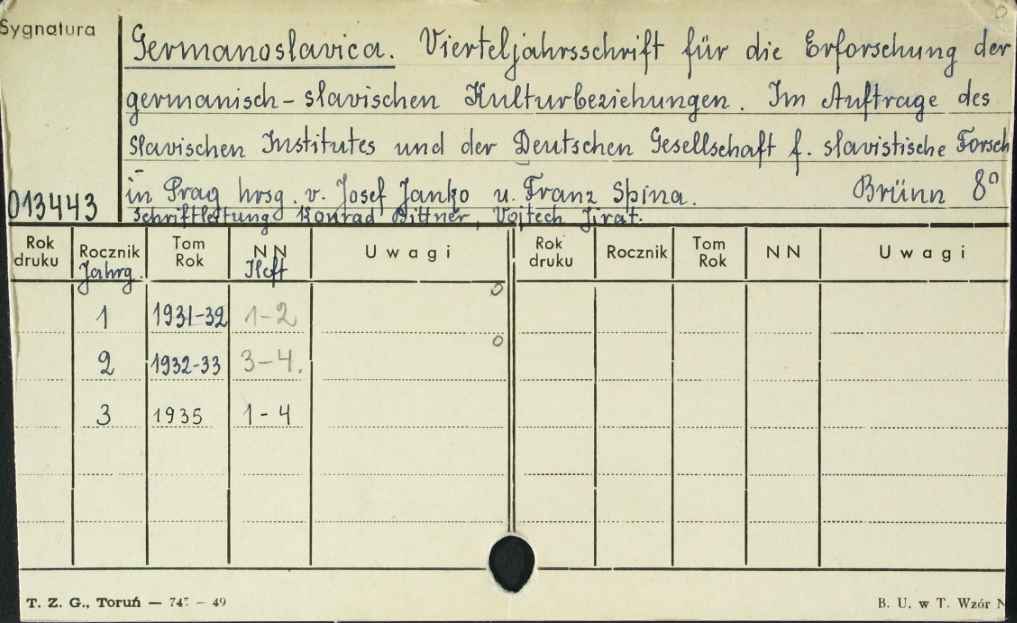 Sygnatura
Germanoslavica. Vierteljahrsschrift für die Erforschung der
germanisch-slavischen Kulturbeziehungen. Im Auftrage des
Slavischen Institutes und der Deutschen Gesellschaft f. slavistische Forsch
in Prag hrsg. v. Josef Janko u. Franz Spina. Brünn 8°
013443
Schriftleitung Konrad Bittner, Vojtech Jirat.
Rok druku Rocznik Tom Rok NN Uwagi Rok druku Rocznik Tom Rok NN Uwagi
Jahrg. Heft
1 1931-32 1-2
2 1932-33 3-4.
3 1935 1-4
T. Z. G., Toruń — 747 - 49 B. U. w T. Wzór N